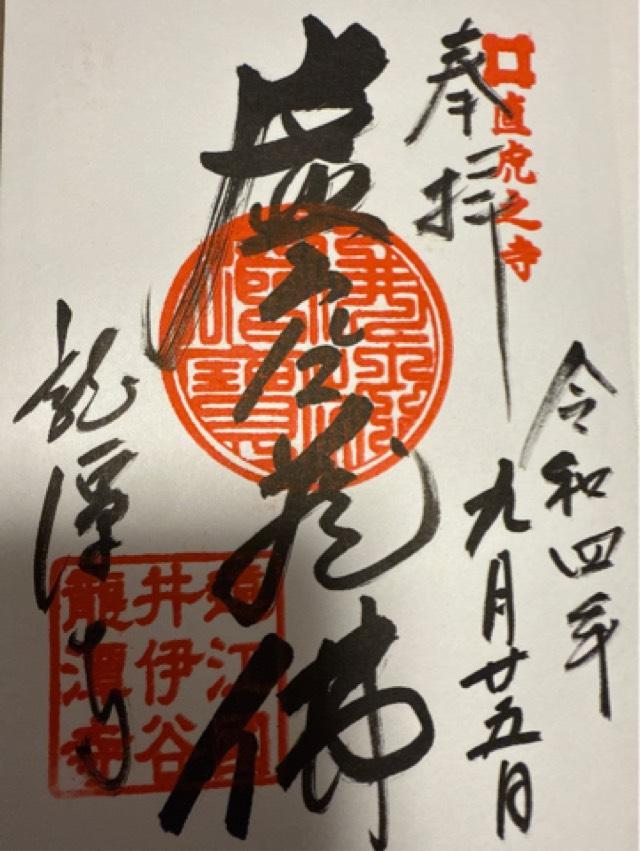 直虎之寺
奉拝
令和四年
九月廿五日
虚空蔵佛
龍潭寺
遠江國
井伊谷
龍潭寺